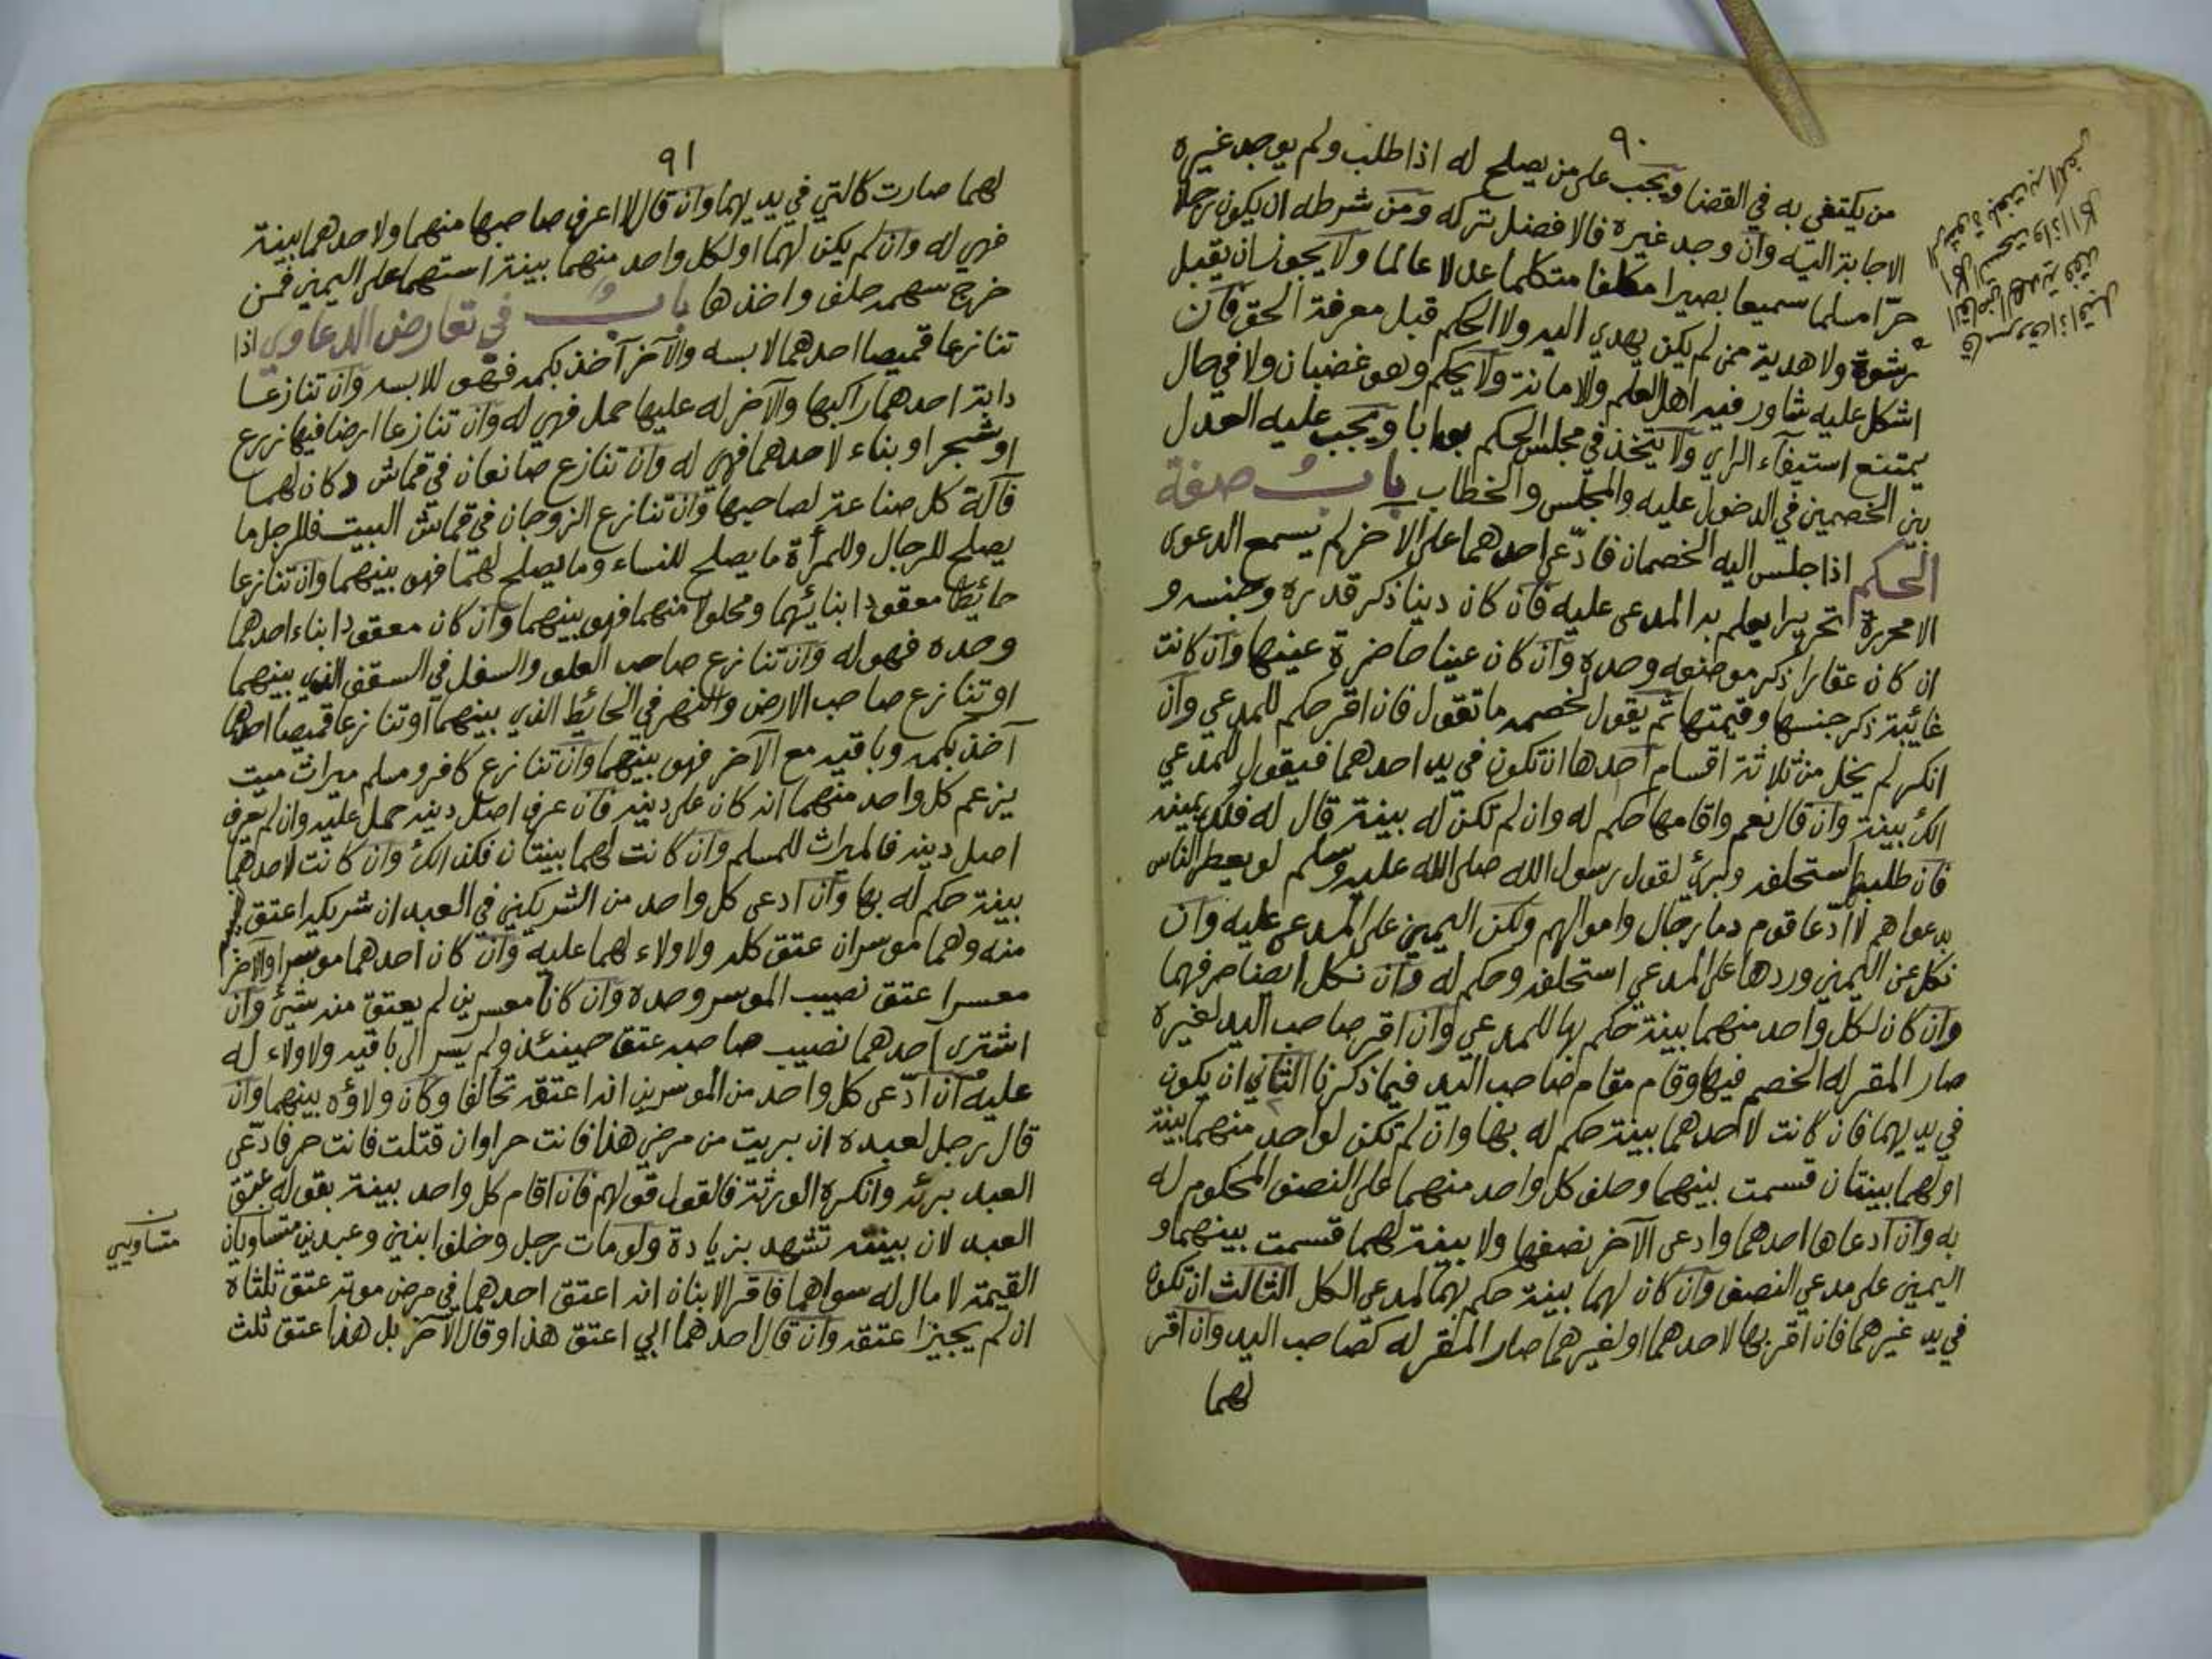 ٩٠
من يكتفى به في القضا ويجب على من يصلح له اذا طلب ولم يوجد غيره
الاجابة اليه وان وجد غيره فالافضل تركه ومن شرطه ان يكون رجلا
حرّا مسلما سميعا بصيرا مكلفا متكلما عدلا عالما ولا يجوز ان يقبل
رشوة ولا هدية ممن لم يكن يهدي اليه ولا الحكم قبل معرفة الحق فان
اشكل عليه شاور فيه اهل العلم والامانة ولا يحكم وهو غضبان ولا في حال
يمتنع استيفآء الراي ولا يتخذ في مجلس الحكم بوابا ويجب عليه العدل
بين الخصمين في الدخول عليه والمجلس والخطاب باب صفة
الحكم اذا جلس اليه الخصمان فادّعى احدهما على الاخر لم يسمع الدعوى
الا محررة تحريرا يعلم به المدعى عليه فان كان دينا ذكر قدره وجنسه و
ان كان عقارا ذكر موضعه وحده وان كان عينا حاضرة عينها وان كانت
غائبة ذكر جنسها وقيمتها ثم يقول لخصمه ما تقول فان اقر حكم للمدعي وان
انكر لم يخل من ثلاثة اقسام احدها ان تكون في يد احدهما فيقول للمدعي
الك بينة وان قال نعم واقامها حكم له وان لم تكن له بينة قال له فلك يمينه
فان طلبها استحلفه وبرئ لقول رسول الله صلى الله عليه وسلم لو يعطى الناس
بدعواهم لادّعا قوم دما رجال واموالهم ولكن اليمين على المدعى عليه وان
نكل عن اليمين وردها على المدعي استحلفه وحكم له وان نكل ايضا صرفهما
وان كان لكل واحد منهما بينة حكم بها للمدعي وان اقر صاحب اليد لغيره
صار المقر له الخصم فيها وقام مقام صاحب اليد فيما ذكرنا الثاني ان يكون
في يديهما فان كانت لاحدهما بينة حكم له بها وان لم تكن لواحد منهما بينة
او لهما بينتان قسمت بينهما وحلف كل واحد منهما على النصف المحكوم له
به وان ادعاها احدهما وادعى الآخر نصفها ولا بينة لهما قسمت بينهما و
اليمين على مدعي النصف وان كان لهما بينة حكم بهما لمدعي الكل الثالث ان تكون
في يد غيرهما فان اقر بها لاحدهما او لغيرهما صار المقر له كصاحب اليد وان اقر
لهما
٩١
لهما صارت كالتي في يديهما وان قال لا اعرف صاحبها منهما ولاحدهما بينة
فهي له وان لم يكن لهما او لكل واحد منهما بينة استهما على اليمين فمن
خرج سهمه حلف واخذها باب في تعارض الدعاوي اذا
تنازعا قميصا احدهما لابسه والآخر آخذ بكمه فهو للابسه وان تنازعا
دابة احدهما راكبها والآخر له عليها حمل فهي له وان تنازعا ارضا فيها زرع
او شجر او بناء لاحدهما فهي له وان تنازع صانعان في قماش دكان لهما
فآلة كل صناعة لصاحبها وان تنازع الزوجان في قماش البيت فللرجل ما
يصلح للرجال وللمرأة ما يصلح للنساء وما يصلح لهما فهو بينهما وان تنازعا
حائطا معقودا ببنائهما ومحلولا منهما فهو بينهما وان كان معقودا ببناء احدهما
وحده فهو له وان تنازع صاحب العلو والسفل في السقف الذي بينهما
او تنازع صاحب الارض والنهر في الحائط الذي بينهما او تنازعا قميصا احدهما
آخذ بكمه وباقيه مع الآخر فهو بينهما وان تنازع كافر ومسلم ميراث ميت
يزعم كل واحد منهما انه كان على دينه فان عرف اصل دينه حمل عليه وان لم يعرف
اصل دينه فالميراث للمسلم وان كانت لهما بينتان فكذالك وان كانت لاحدهما
بينة حكم له بها وان ادعى كل واحد من الشريكين في العبد ان شريكه اعتق
منه وهما موسران عتق كله ولا ولاء لهما عليه وان كان احدهما موسرا والآخر
معسرا عتق نصيب الموسر وحده وان كانا معسرين لم يعتق منه شئ وان
اشترى احدهما نصيب صاحبه عتق حينئذ ولم يسر الى باقيه ولا ولاء له
عليه وان ادّعى كل واحد من الموسرين انه اعتقه تحالفا وكان ولاؤه بينهما وان
قال رجل لعبده ان بريت من مرضي هذا فانت حر وان قتلت فانت حر فادّعى
العبد برئه وانكره الورثة فالقول قولهم فان اقام كل واحد بينة بقوله عتق
العبد لان بينته تشهد بزيادة ولو مات رجل وخلف ابنين وعبدين متساويان
القيمة لا مال له سواهما فاقر الابنان انه اعتق احدهما في مرض موته عتق ثلثاه
ان لم يجيزا عتقه وان قال احدهما ابي اعتق هذا وقال الآخر بل هذا عتق ثلث
متساويين